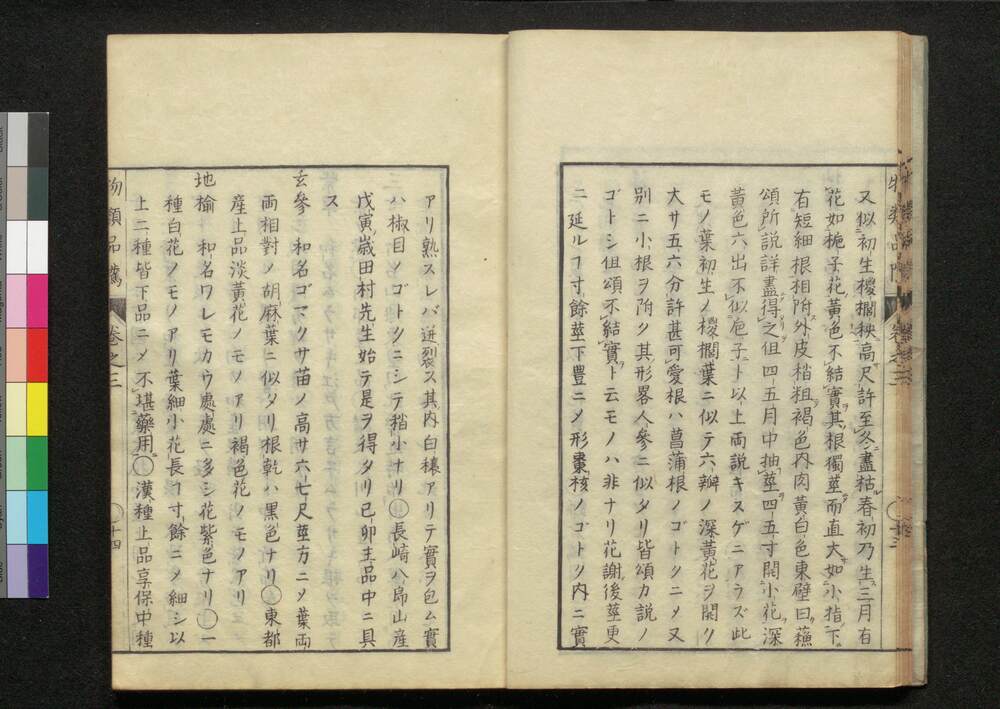 又似初生椶櫚秧高尺許至冬盡枯春初乃生三月有
花如梔子花黃色不結實其根獨莖而直大如小指下
有短細根相附外皮稍粗褐色內肉黃白色東壁曰蘓
頌所說詳盡得之但四五月中抽莖四五寸開小花深
黃色六出不似巵子ト以上両說キスゲニアラズ此
モノ葉初生ノ椶櫚葉ニ似テ六瓣ノ深黃花ヲ開ク
大サ五六分許甚可愛根ハ菖蒲根ノゴトクニメ又
別ニ小根ヲ附ク其形畧人參ニ似タリ皆頌カ說ノ
ゴトシ但頌不結實ト云モノハ非ナリ花謝後莖更
ニ延ルヿ寸餘莖下豊ニメ形棗核ノゴトク内ニ實
物類品隲 卷之三 十三
アリ熟スレバ迸裂ス其内白穰アリテ實ヲ包ム實
ハ椒目ノゴトクニシテ稍小ナリ○長崎八郎山産
戊寅歳田村先生始テ是ヲ得タリ己卯主品中ニ具
ス
玄參 和名ゴマクサ苗ノ高サ六七尺莖方ニメ葉両
両相對ノ胡麻葉ニ似タリ根乾ハ黒色ナリ○東都
產上品淡黃花ノモノアリ褐色花ノモノアリ
地榆 和名ワレモカウ處處ニ多シ花紫色ナリ○一
種白花ノモノアリ葉細小花長ヿ寸餘ニメ細シ以
上二種皆下品ニメ不堪藥用○漢種上品享保中種
物類品隲 卷之三 十四